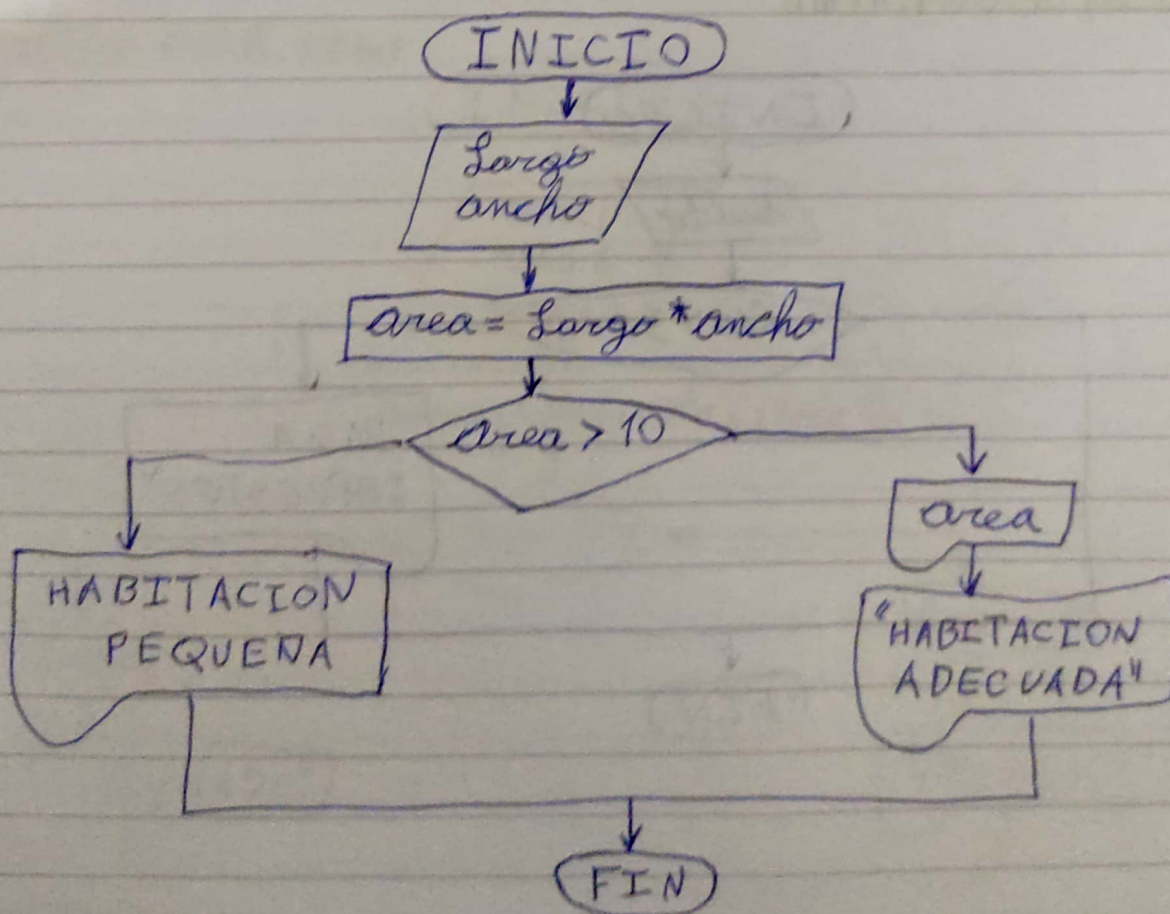 INICIO
Largo
ancho
area = Largo * ancho
area > 10
area
HABITACION
PEQUEÑA
"HABITACION
ADECUADA"
FIN